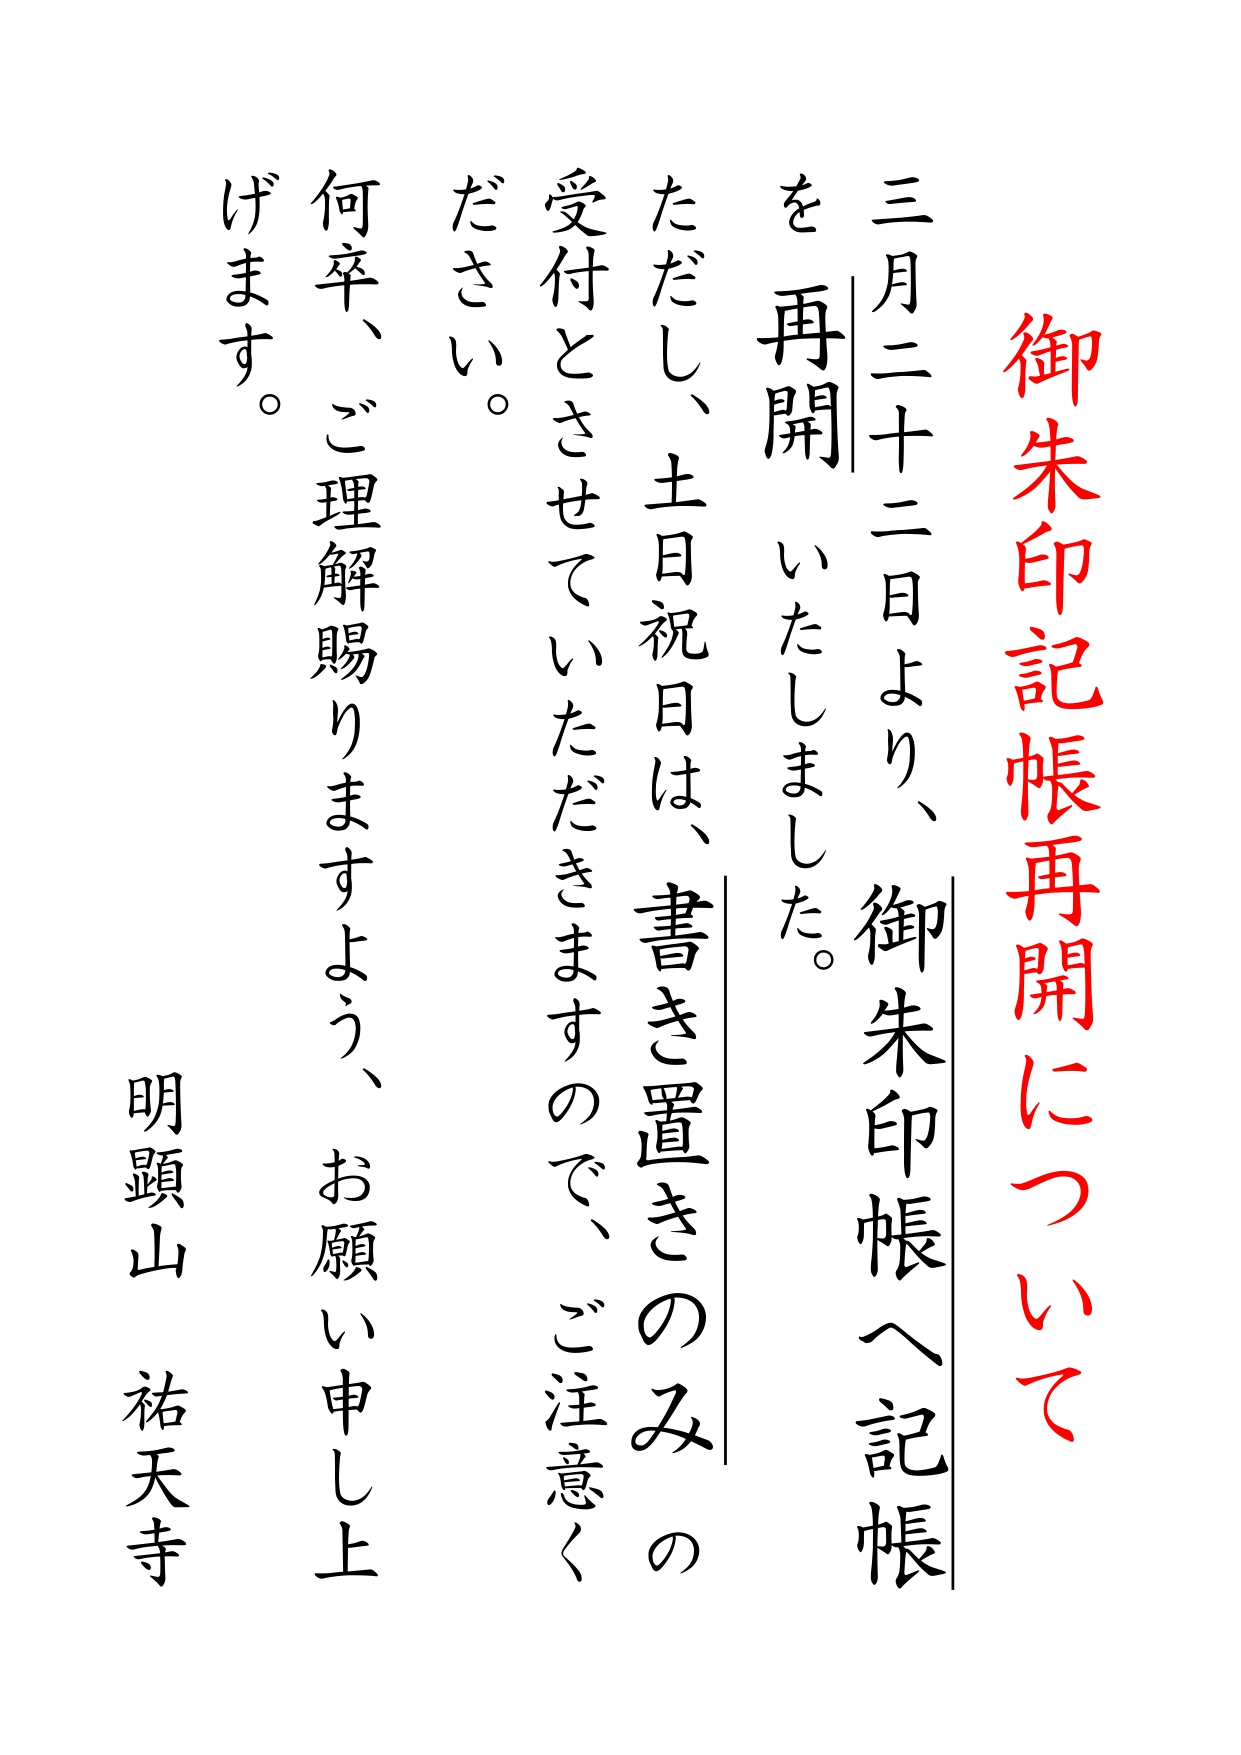 御朱印記帳再開について
三月二十二日より、御朱印帳へ記帳
を　再開　いたしました。
ただし、土日祝日は、書き置きのみ　の
受付とさせていただきますので、ご注意く
ださい。
何卒、ご理解賜りますよう、お願い申し上
げます。
明顕山　祐天寺